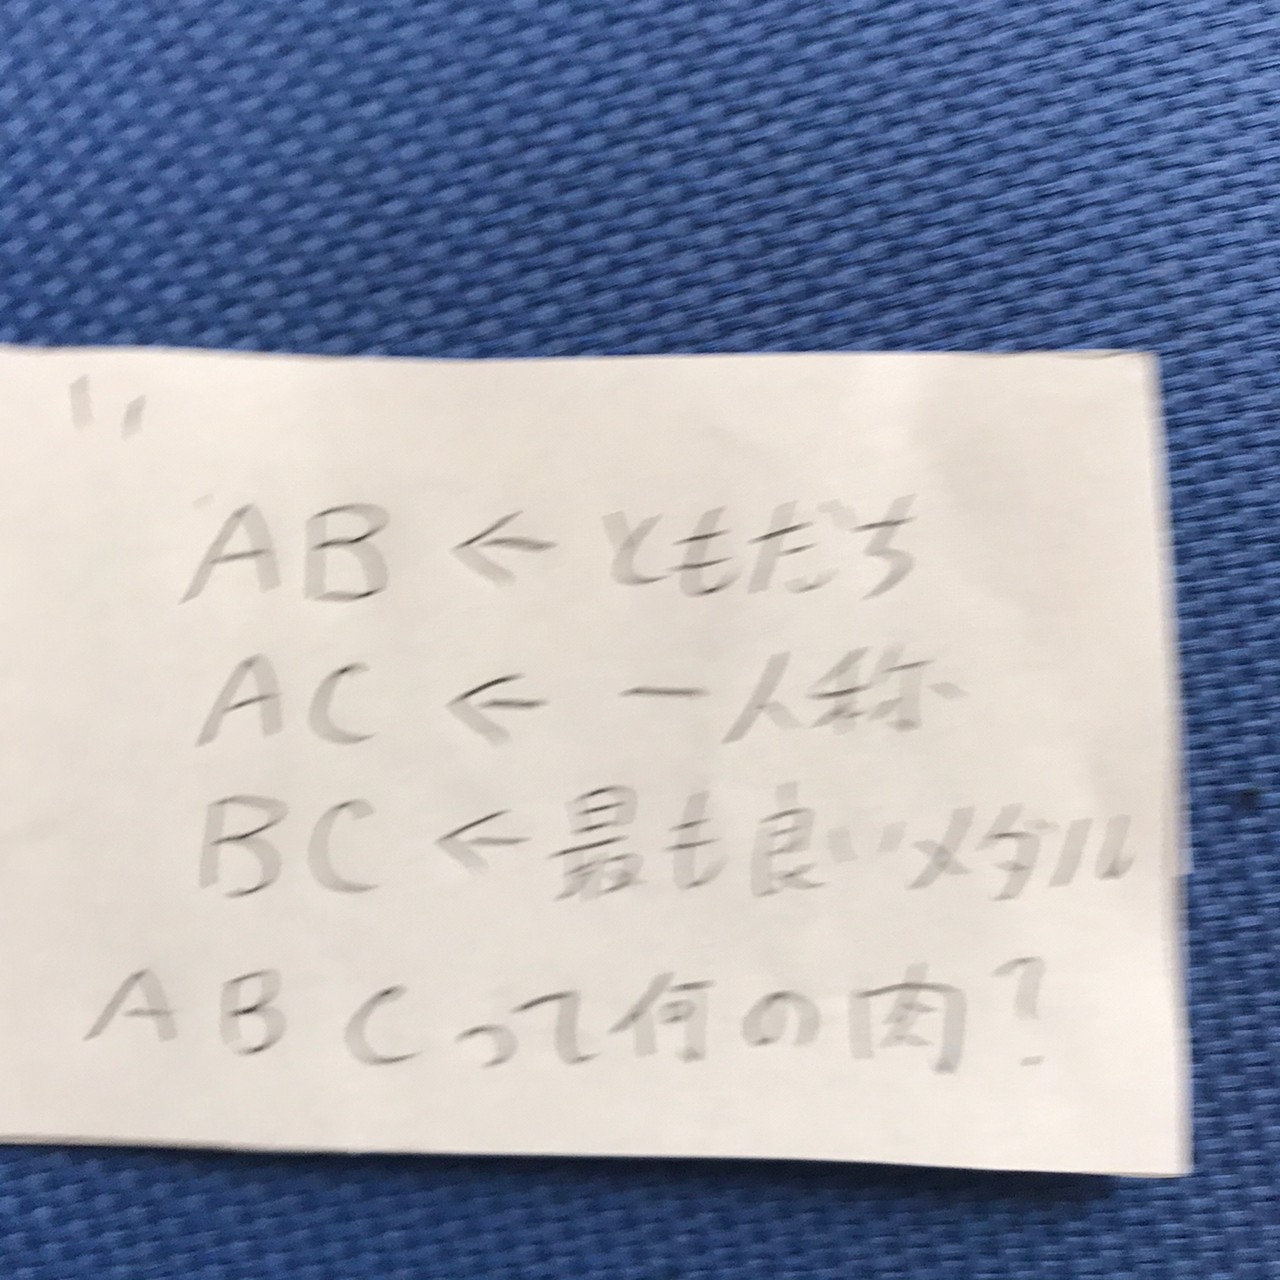 AB ← ともだち
AC ← 一人称
BC ← 最も良いメダル
ABCって何の肉?